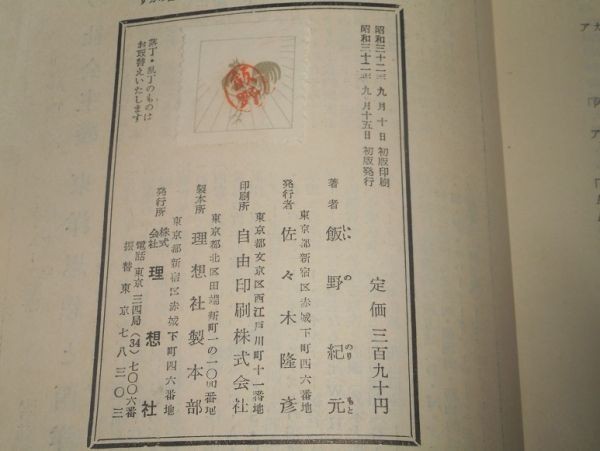 昭和三十二年九月十日 初版印刷
昭和三十二年九月十五日 初版発行
定価 三百九十円
著者 飯野紀元
いいの のりもと
東京都新宿区赤城下町四六番地
発行者 佐々木隆彦
東京都文京区西江戸川町十一番地
印刷所 自由印刷株式会社
東京都北区田端新町一の一〇四番地
製本所 理想社製本部
東京都新宿区赤城下町四六番地
発行所 株式会社 理想社
電話東京三四局(34)七〇〇六番
振替東京七八三〇三
飯野
落丁・乱丁のものは
お取替えいたします